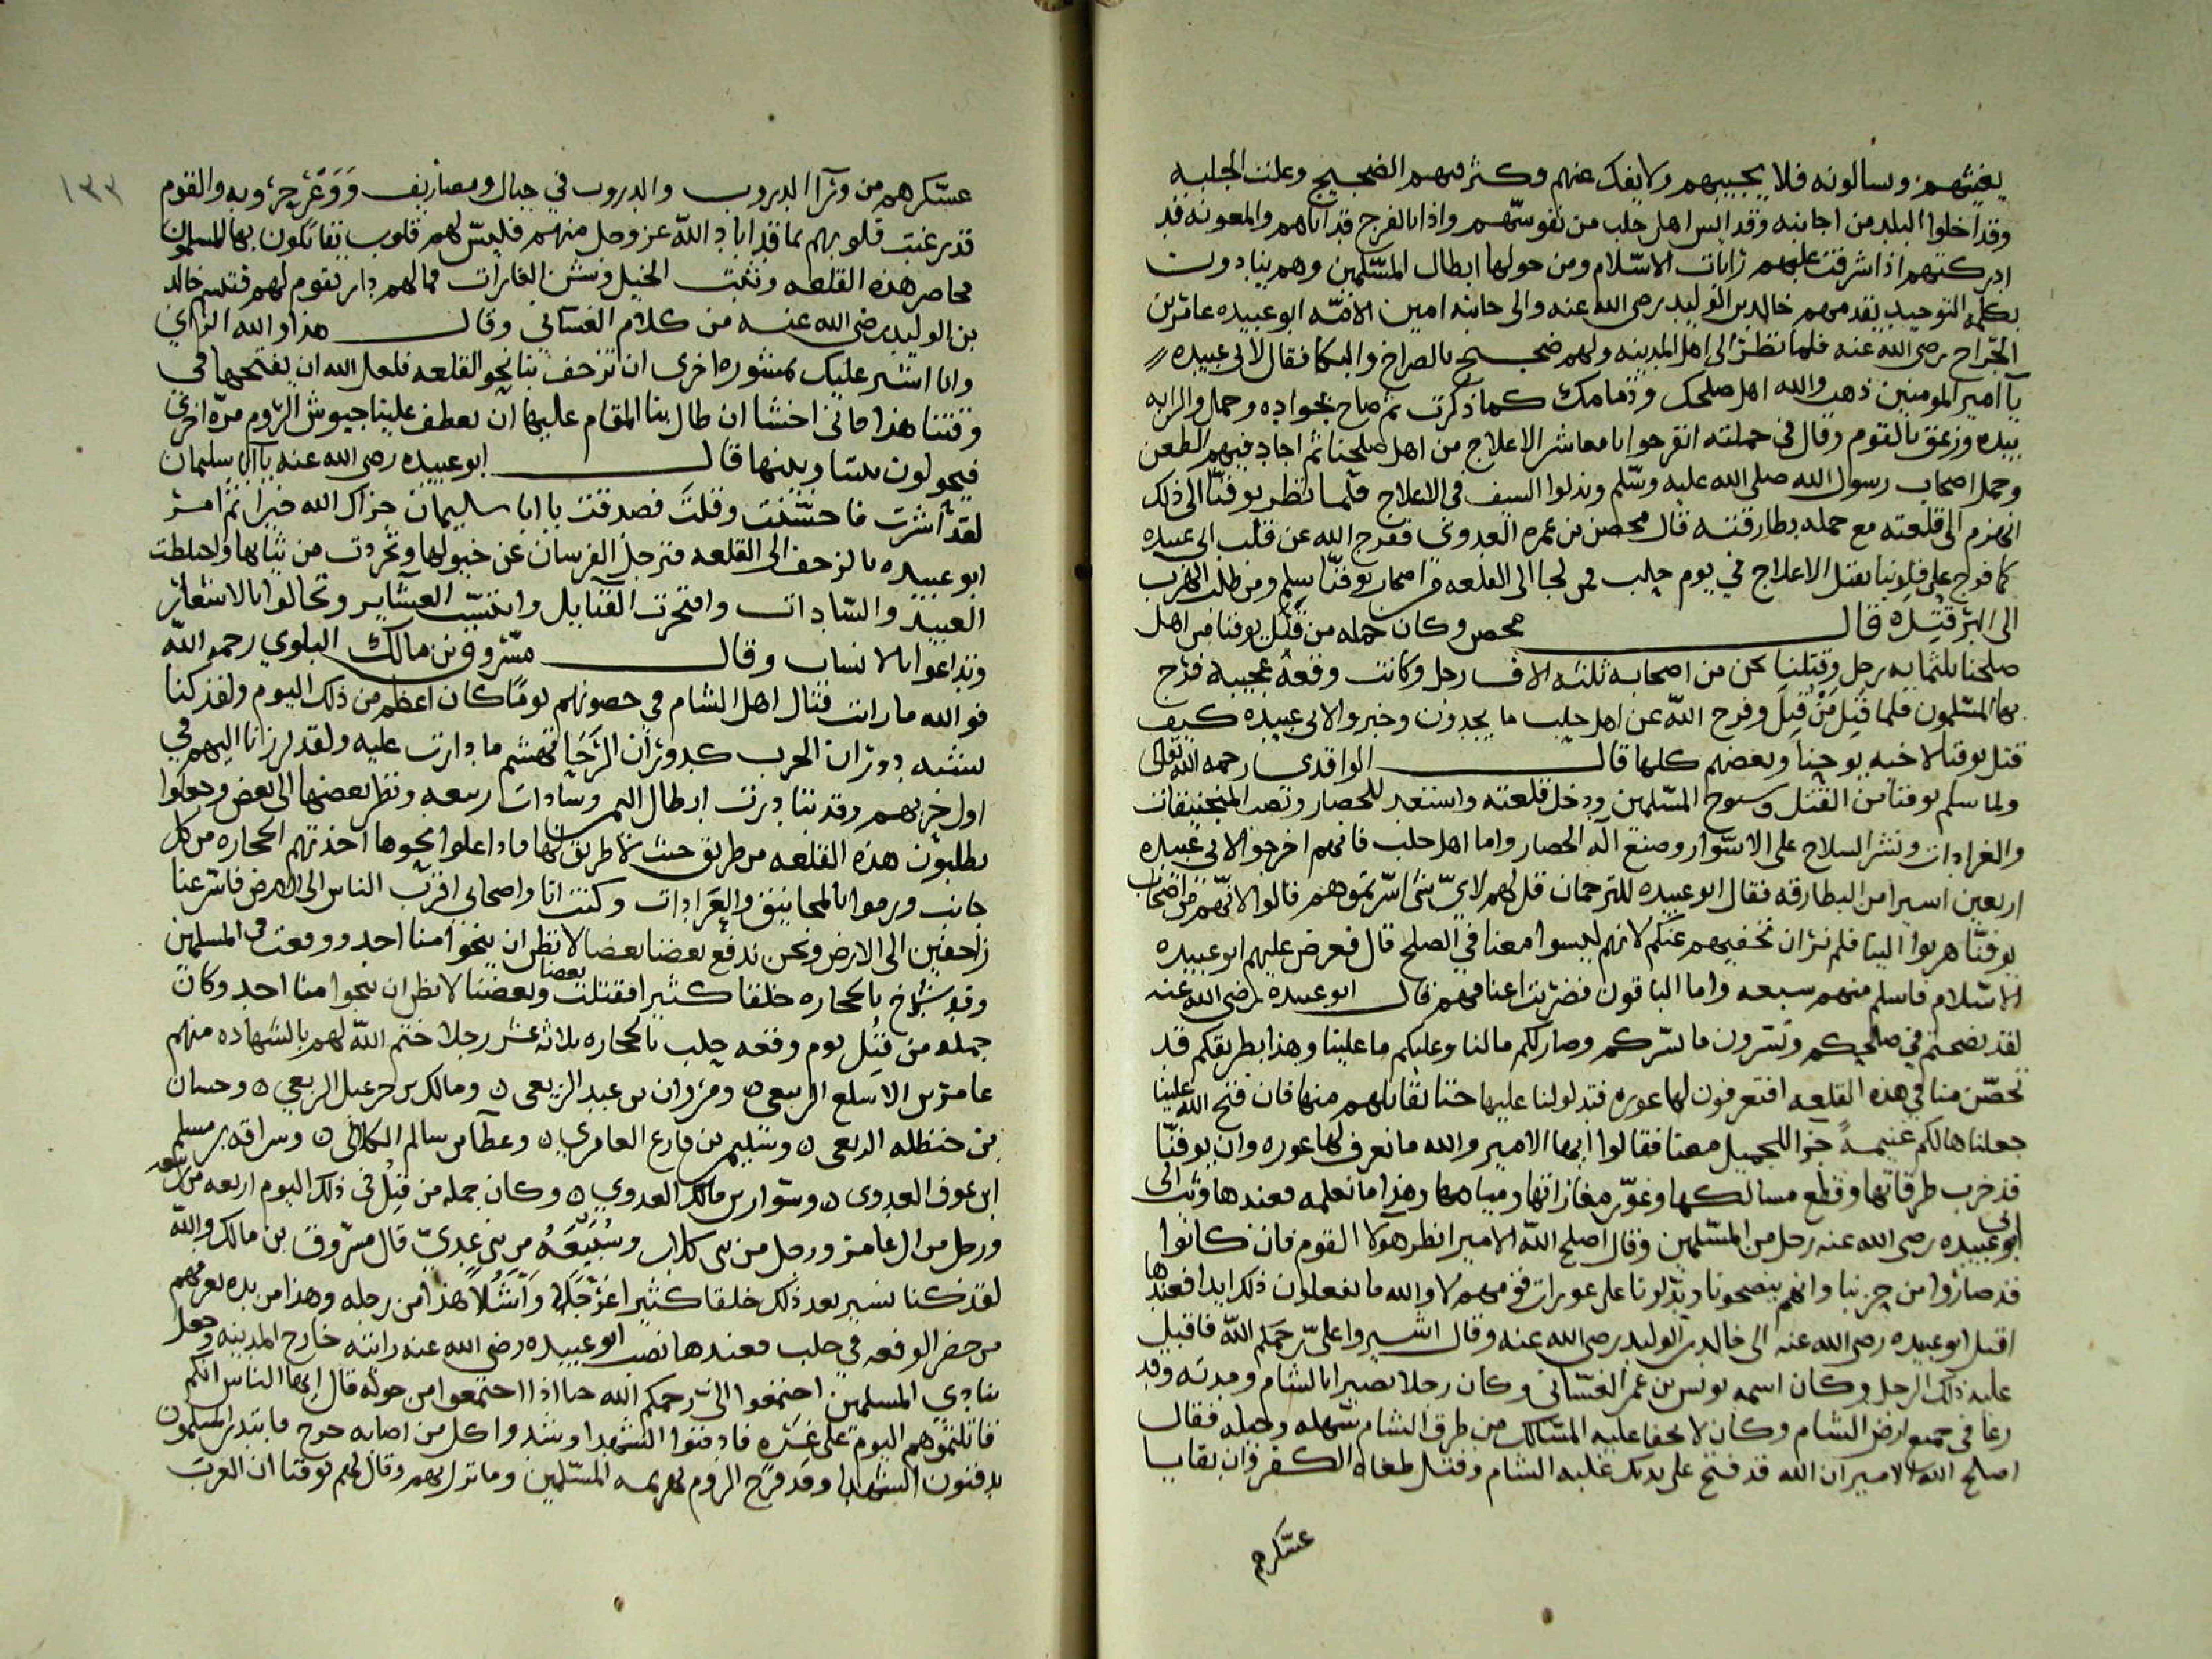 يغيثهم ويسالونه فلا يجيبهم ولا يفك عنهم وكثر فيهم الضجيج وعلت الجلبه
وقد اخلوا البلد من اجابته وقد ايس اهل حلب من نفوسهم واذا بالفرج قد اتاهم والمعونه قد
ادركتهم اذا اشرفت عليهم رايات الاسلام ومن حولها ابطال المسلمين وهم ينادون
بكلمة التوحيد يقدمهم خالد بن الوليد رضى الله عنه والى جانبه امين الامه ابو عبيده عامر بن
الجراح رضى الله عنه فلما نظر الى اهل المدينه ولهم ضجيج بالصراخ والبكا فقال لابى عبيده
يا امير المومنين ذهب والله اهل صلحك وذمامك كما ذكرت ثم صاح بجواده وحمل والرايه
بيده وزعق بالقوم وقال فى حملته انفرجوا يا معاشر الاعلاج من اهل صلحنا ثم اجاد فيهم الطعن
وحمل اصحاب رسول الله صلى الله عليه وسلم وبذلوا السيف فى الاعلاج فلما نظر يوقنا الى ذلك
انهزم الى قلعته مع جمله بطارقته قال محصن بن عمره العدوى ففرج الله عن قلب ابى عبيده
كما فرج على قلوبنا بقتل الاعلاج فى يوم حلب فمن لجا الى القلعه من اصحاب يوقنا سلم ومن طلب الهرب
الى البر قتله قال محصن وكان جمله من قتل يوقنا من اهل
صلحنا ثلثمايه رجل وقتلنا نحن من اصحابه ثلثه الاف رجل وكانت وقعه عجيبه فرح
بها المسلمون فلما قتل من قتل وفرج الله عن اهل حلب ما يجدون وخبروا لابى عبيده كيف
قتل يوقنا لاخيه يوحنا وبعضهم كلها قال الواقدى رحمه الله تعالى
ولما سلم يوقنا من القتل وسيوف المسلمين ودخل قلعته واستعد للحصار ونصب المنجنيقات
والعرادات ونشر السلاح على الاسوار وصنع آلة الحصار واما اهل حلب فانهم اخرجوا لابى عبيده
اربعين اسيرا من البطارقه فقال ابو عبيده للترجمان قل لهم لاي شى اسرتموهم قالوا لانهم من اصحاب
يوقنا هربوا الينا فلم نر ان نخفيهم عنكم لانهم ليسوا معنا فى الصلح قال فعرض عليهم ابو عبيده
الاسلام فاسلم منهم سبعه واما الباقون فضربت اعناقهم قال ابو عبيده رضى الله عنه
لقد نصحتم فى صلحكم وسترون ما يسركم وصار لكم مالنا وعليكم ما علينا وهذا بطريقكم قد
تحصن منا فى هذه القلعه افتعرفون لها عوره فتدلونا عليها حتا نقاتلهم منها فان فتح الله علينا
جعلناها لكم غنيمة جزا لجميل معنا فقالوا ايها الامير والله ما نعرف لها عوره وان يوقنا
قد خرب طرقاتها وقطع مسالكها وغور مغازاتها ومياهها وهذا ما نعلمه فعندها وثب الى
ابى عبيده رضى الله عنه رجل من المسلمين وقال اصلح الله الامير انظر هولا القوم فان كانوا
قد صاروا من حزبنا وانهم ينصحونا ويدلونا على عورات قومهم لا والله ما يفعلون ذلك ابدا فعندها
اقبل ابو عبيده رضى الله عنه الى خالد بن الوليد رضى الله عنه وقال اشيروا علىّ رحمكم الله فاقبل
عليه ذلك الرجل وكان اسمه يونس بن عمر الغسانى وكان رجلا بصيرا بالشام ومدنه وقد
رعا فى جميع ارض الشام وكان لا يخفا عليه المسالك من طرق الشام سهله وجبله فقال
اصلح الله الامير ان الله قد فتح على يديك غلبه الشام وقتل طغاه الكفر وان بقايا
عسكرهم
١٣٣
عسكرهم من ورآ الدروب والدروب في جبال ومضاريف ووعر حروبه والقوم
قد رعبت قلوبهم بما قد اباد الله عز وجل منهم فليس لهم قلوب يقاتلون بها المسلمون
محاصر هذه القلعه ونثبت الخيل ونشن الغارات فمالهم دار يقوم لهم فتبسم خالد
بن الوليد رضى الله عنه من كلام الغسانى وقال هذا والله الراي
وانا اشير عليك بمشوره اخرى ان تزحف بنا نحو القلعه فلعل الله ان يفتحها فى
وقتنا هذا فانى اخشا ان طال بنا المقام عليها ان يعطف علينا جيوش الروم مرة اخرى
فيحولون بيننا وبينها قال ابو عبيده رضى الله عنه يا ابا سليمان
لقد اشرت فاحسنت وقلت فصدقت يا ابا سليمان جزاك الله خيرا ثم امر
ابو عبيده بالزحف الى القلعه فترجل الفرسان عن خيولها وتجردت من ثيابها واختلطت
العبيد والسادات وافتخرت القبايل وانتسبت العشاير وتحالوا بالاشعار
وتداعوا بالانساب وقال مسروق بن مالك البلوي رحمه الله
فوالله ما رايت قتال اهل الشام في حصونهم يوما كان اعظم من ذلك اليوم ولقد كنا
نشبه دوران الحرب كدوران الرحا تهشم ما دارت عليه ولقد برزنا اليهم في
اول حربهم وقد تبادرت ابطال اليمن وسادات ربيعه ونظر بعضها الى بعض وجعلوا
يطلبون هذه القلعه من طريق حيث لا طريق لها فاذا علوا نحوها اخذتهم الحجاره من كل
جانب ورموا بالمجانيق والعرادات وكنت انا واصحابى اقرب الناس الى الارض فاسرعنا
زاحفين الى الارض ونحن ندفع بعضنا بعضا لا نظن ان ينجوا منا احد ووقعت فى المسلمين
وقد شرخ بالحجاره خلقا كثيرا فقتلت بعضنا وبعضنا لا نظن ان ينجوا منا احد وكان
جمله من قتل يوم وقعه حلب بالحجاره ثلاثه عشر رجلا ختم الله لهم بالشهاده منهم
عامر بن الاسلع الربيعى ٥ ومروان بن عبد الربعى ٥ ومالك بن خزعل الربعي ٥ وحسان
بن حنظله الربعى ٥ وسليم بن فارع العامرى ٥ وعطا بن سالم الكلابى ٥ وسراقه بن مسلم
ابن عوف العدوى ٥ وسوار بن مالك العدوي ٥ وكان جمله من قتل فى ذلك اليوم اربعه من ربيعه
ورجل من ال عامر ورجل من بنى كلاب وسبيعة من بنى عدىّ قال مسروق بن مالك والله
لقد كنا نسير بعد ذلك خلقا كثيرا اعرجًا واشلا هذا من رجله وهذا من يده نعرفهم
من حضر الوقعه فى حلب فعندها نصب ابو عبيده رضى الله عنه رايته خارج المدينه وجعل
ينادي المسلمين اجتمعوا الىّ رحمكم الله حتا اذا اجتمعوا من حوله قال ايها الناس انكم
قاتلتموهم اليوم على غره فادفنوا الشهدا وشدوا كل من اصابه جرح فابتدر المسلمون
يدفنون الشهدا وقد فرح الروم بهزيمه المسلمين وما نزل بهم وقال لهم يوقنا ان العرب